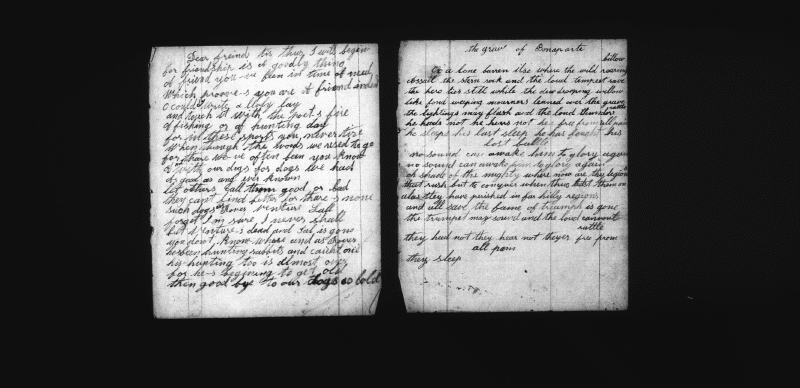 Dear freind tis thus I will begin
for friendship is a goodly thing
a friend you-ve been in time of need
Which proove-s you are a friend indeed
O could I write a
and touch it with the poet-s fire
of fishing or of hunting day
for in these sports you never tire
When through the woods we used to go
for there we-ve often been you know
with our dogs for dogs we had
as good as and ever known
let others call them good or bad
they cant find better for there-s none
such dogs as
forget I-m sure I never shall
but Venture-s dead and is gone
you dont know where and as
hunting rabbits and
his hunting too is almost over
for he-s begining to get old
then good bye to our dogs so bold
the grave of Bonaparte
billow
On a lone barren isle where the wild roaring
assail the stern rock and the loud tempest rave
the hero lies still while the dew drooping willow
like fond weeping mourners leaned over the grave
the lightings may flash and the loud thunders rattle
he heeds not he hears not he free from all pain
he sleeps his last sleep he has fought his
last battle
no sound can awake him to glory again
no sound can awake him to glory again
oh shade of the mighty where now are thy legions
that rush but to conquer when thou them on
alas they have perished in far hilly regions
and all save the fame of triumph is gone
the trumpet may sound and the loud cannons
rattle
they heed not they hear not they are free from
all pain
they sleep